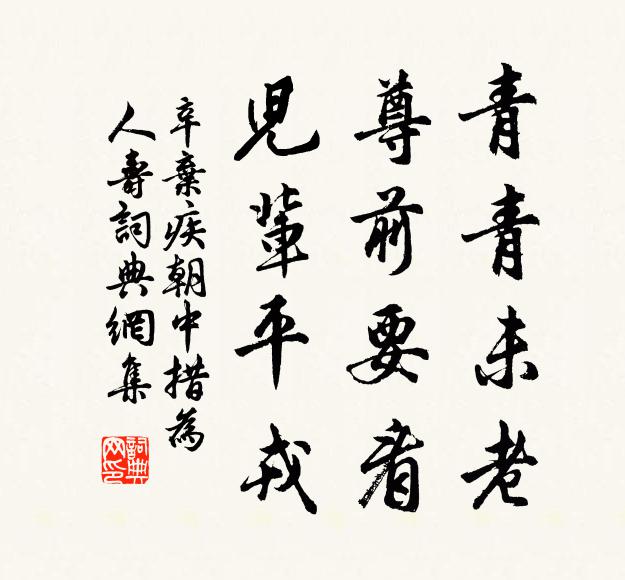 青青未老
尊前要看
兒輩平戎
辛棄疾朝中措為
人壽詞典網集
詞典
网印